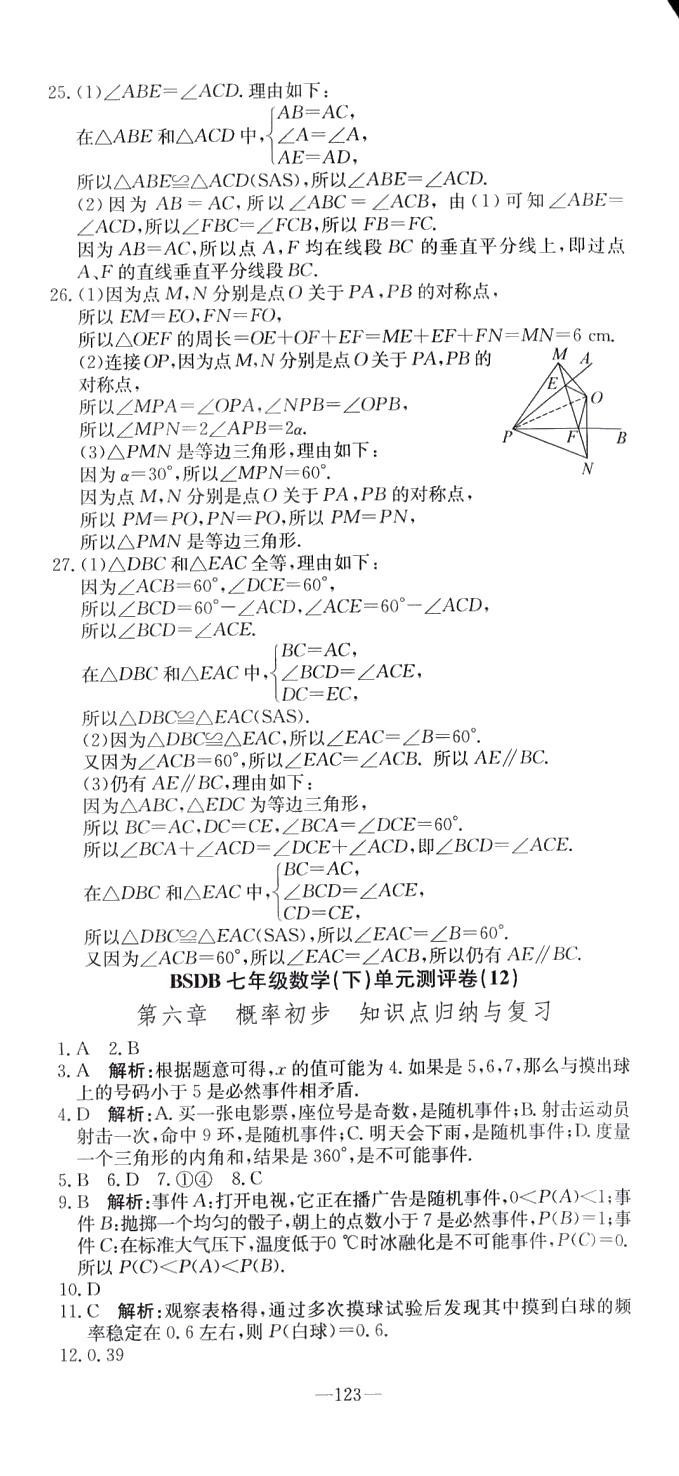 25. (1)∠ABE=∠ACD. 理由如下:
在△ABE 和△ACD 中, { AB=AC,
∠A=∠A,
AE=AD,
所以△ABE≌△ACD(SAS),所以∠ABE=∠ACD.
(2) 因为 AB=AC, 所以∠ABC=∠ACB, 由(1)可知∠ABE=
∠ACD,所以∠FBC=∠FCB,所以 FB=FC.
因为 AB=AC,所以点 A,F 均在线段 BC 的垂直平分线上,即过点
A、F 的直线垂直平分线段 BC.
26. (1)因为点 M,N 分别是点 O 关于 PA,PB 的对称点,
所以 EM=EO,FN=FO,
所以△OEF 的周长=OE+OF+EF=ME+EF+FN=MN=6 cm.
(2)连接 OP,因为点 M,N 分别是点 O 关于 PA,PB 的
对称点,
所以∠MPA=∠OPA,∠NPB=∠OPB,
所以∠MPN=2∠APB=2α.
(3)△PMN 是等边三角形,理由如下:
因为 α=30°,所以∠MPN=60°.
因为点 M,N 分别是点 O 关于 PA,PB 的对称点,
所以 PM=PO,PN=PO,所以 PM=PN,
所以△PMN 是等边三角形.
M A
E
O
P F B
N
27. (1)△DBC 和△EAC 全等,理由如下:
因为∠ACB=60°,∠DCE=60°,
所以∠BCD=60°-∠ACD,∠ACE=60°-∠ACD,
所以∠BCD=∠ACE.
在△DBC 和△EAC 中, { BC=AC,
∠BCD=∠ACE,
DC=EC,
所以△DBC≌△EAC(SAS).
(2)因为△DBC≌△EAC,所以∠EAC=∠B=60°.
又因为∠ACB=60°,所以∠EAC=∠ACB. 所以 AE∥BC.
(3)仍有 AE∥BC,理由如下:
因为△ABC,△EDC 为等边三角形,
所以 BC=AC,DC=CE,∠BCA=∠DCE=60°.
所以∠BCA+∠ACD=∠DCE+∠ACD,即∠BCD=∠ACE.
在△DBC 和△EAC 中, { BC=AC,
∠BCD=∠ACE,
CD=CE,
所以△DBC≌△EAC(SAS),所以∠EAC=∠B=60°.
又因为∠ACB=60°,所以∠EAC=∠ACB,所以仍有 AE∥BC.
BSDB 七年级数学(下)单元测评卷(12)
第六章 概率初步 知识点归纳与复习
1. A 2. B
3. A 解析:根据题意可得,x 的值可能为 4. 如果是 5,6,7,那么与摸出球
上的号码小于 5 是必然事件相矛盾.
4. D 解析:A. 买一张电影票,座位号是奇数,是随机事件;B. 射击运动员
射击一次,命中 9 环,是随机事件;C. 明天会下雨,是随机事件;D. 度量
一个三角形的内角和,结果是 360°,是不可能事件.
5. B 6. D 7. ①④ 8. C
9. B 解析:事件 A:打开电视,它正在播广告是随机事件,0<P(A)<1;事
件 B:抛掷一个均匀的骰子,朝上的点数小于 7 是必然事件,P(B)=1;事
件 C:在标准大气压下,温度低于0 ℃时冰融化是不可能事件,P(C)=0.
所以 P(C)<P(A)<P(B).
10. D
11. C 解析:观察表格得,通过多次摸球试验后发现其中摸到白球的频
率稳定在 0.6 左右,则 P(白球)=0.6.
12. 0.39
—123—